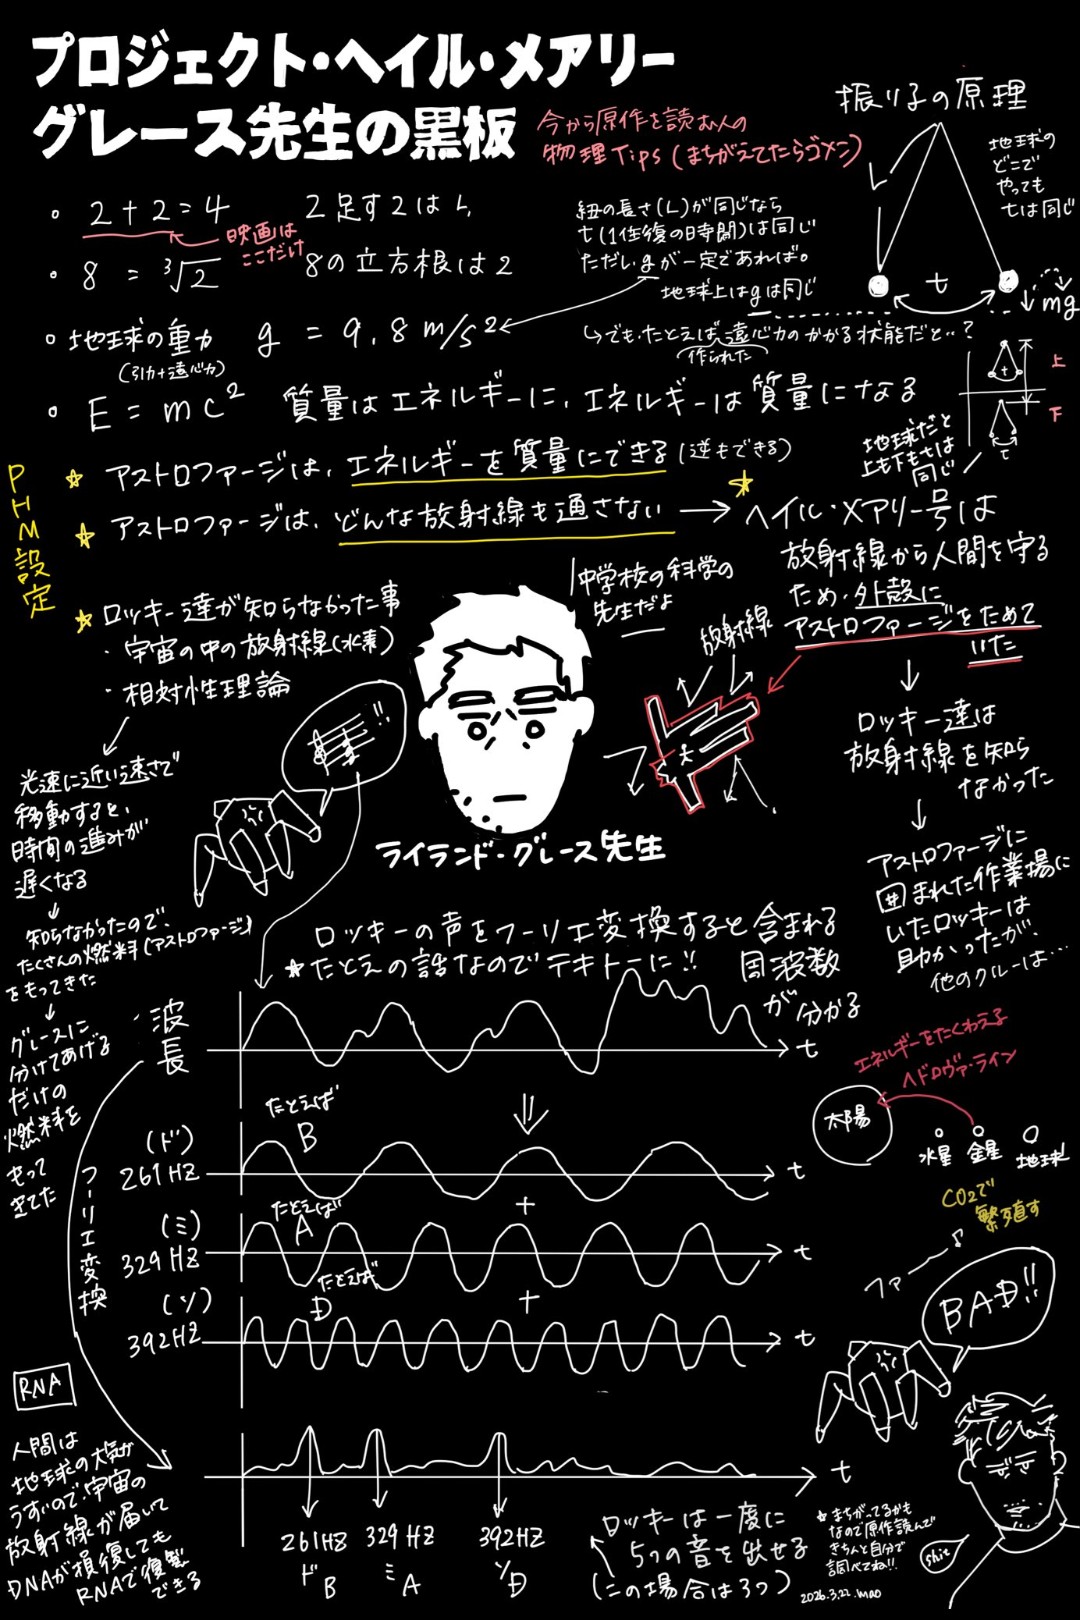 プロジェクト・ヘイル・メアリー
グレース先生の黒板
今から原作を読む人の
物理Tips(まちがえてたらゴメン)
・ 2+2=4 2足す2は4
映画は
ここだけ
・ 8 = ³√2 8の立方根は2
・地球の重力 g = 9.8 m/s²
(引力+遠心力)
・ E = mc² 質量はエネルギーに、エネルギーは質量になる
振り子の原理
地球の
どこで
やっても
tは同じ
紐の長さ(L)が同じなら
t(1往復の時間)は同じ
ただしgが一定であれば。
地球上はgは同じ
L
t
mg
↳でも、たとえば遠心力のかかる状態だと‥?
(作られた)
上
下
t
t
地球だと
上も下もtは
同じ
PHM設定
☆ アストロファージは、エネルギーを質量にできる(逆もできる)
☆ アストロファージは、どんな放射線も通さない →
☆
ヘイル・メアリー号は
放射線から人間を守る
ため、外殻に
アストロファージをためて
いた
↓
ロッキー達は
放射線を知ら
なかった
↓
アストロファージに
囲まれた作業場に
いたロッキーは
助かったが、
他のクルーは…
☆ ロッキー達が知らなかった事
・宇宙の中の放射線(水素)
・相対性理論
光速に近い速さで
移動すると、
時間の進みが
遅くなる
↓
知らなかったので、
たくさんの燃料(アストロファージ)
をもってきた
↓
グレースに
分けてあげる
だけの
燃料を
もって
きてた
中学校の科学の
先生だよ
放射線
!!
ライランド・グレース先生
ロッキーの声をフーリエ変換すると含まれる
周波数
が分かる
★たとえの話なのでテキトーに!!
・波長
t
フーリエ変換
たとえば
B
(ド)
261HZ
t
+
たとえば
A
(ミ)
329HZ
t
+
たとえば
D
(ソ)
392HZ
t
t
261HZ 329HZ 392HZ
ド B ミ A ソ D
ロッキーは一度に
5つの音を出せる
(この場合は3つ)
エネルギーをたくわえる
ペトロヴァ・ライン
太陽
水星 金星 地球
CO2で
繁殖す
ファー♪
BAD!!
RNA
人間は
地球の大気が
うすいので、宇宙の
放射線が届いて
DNAが損復しても
RNAで復製
できる
★まちがってるかも
なので原作読んで
きちんと自分で
調べてね!!
2026.3.22.mao
shit